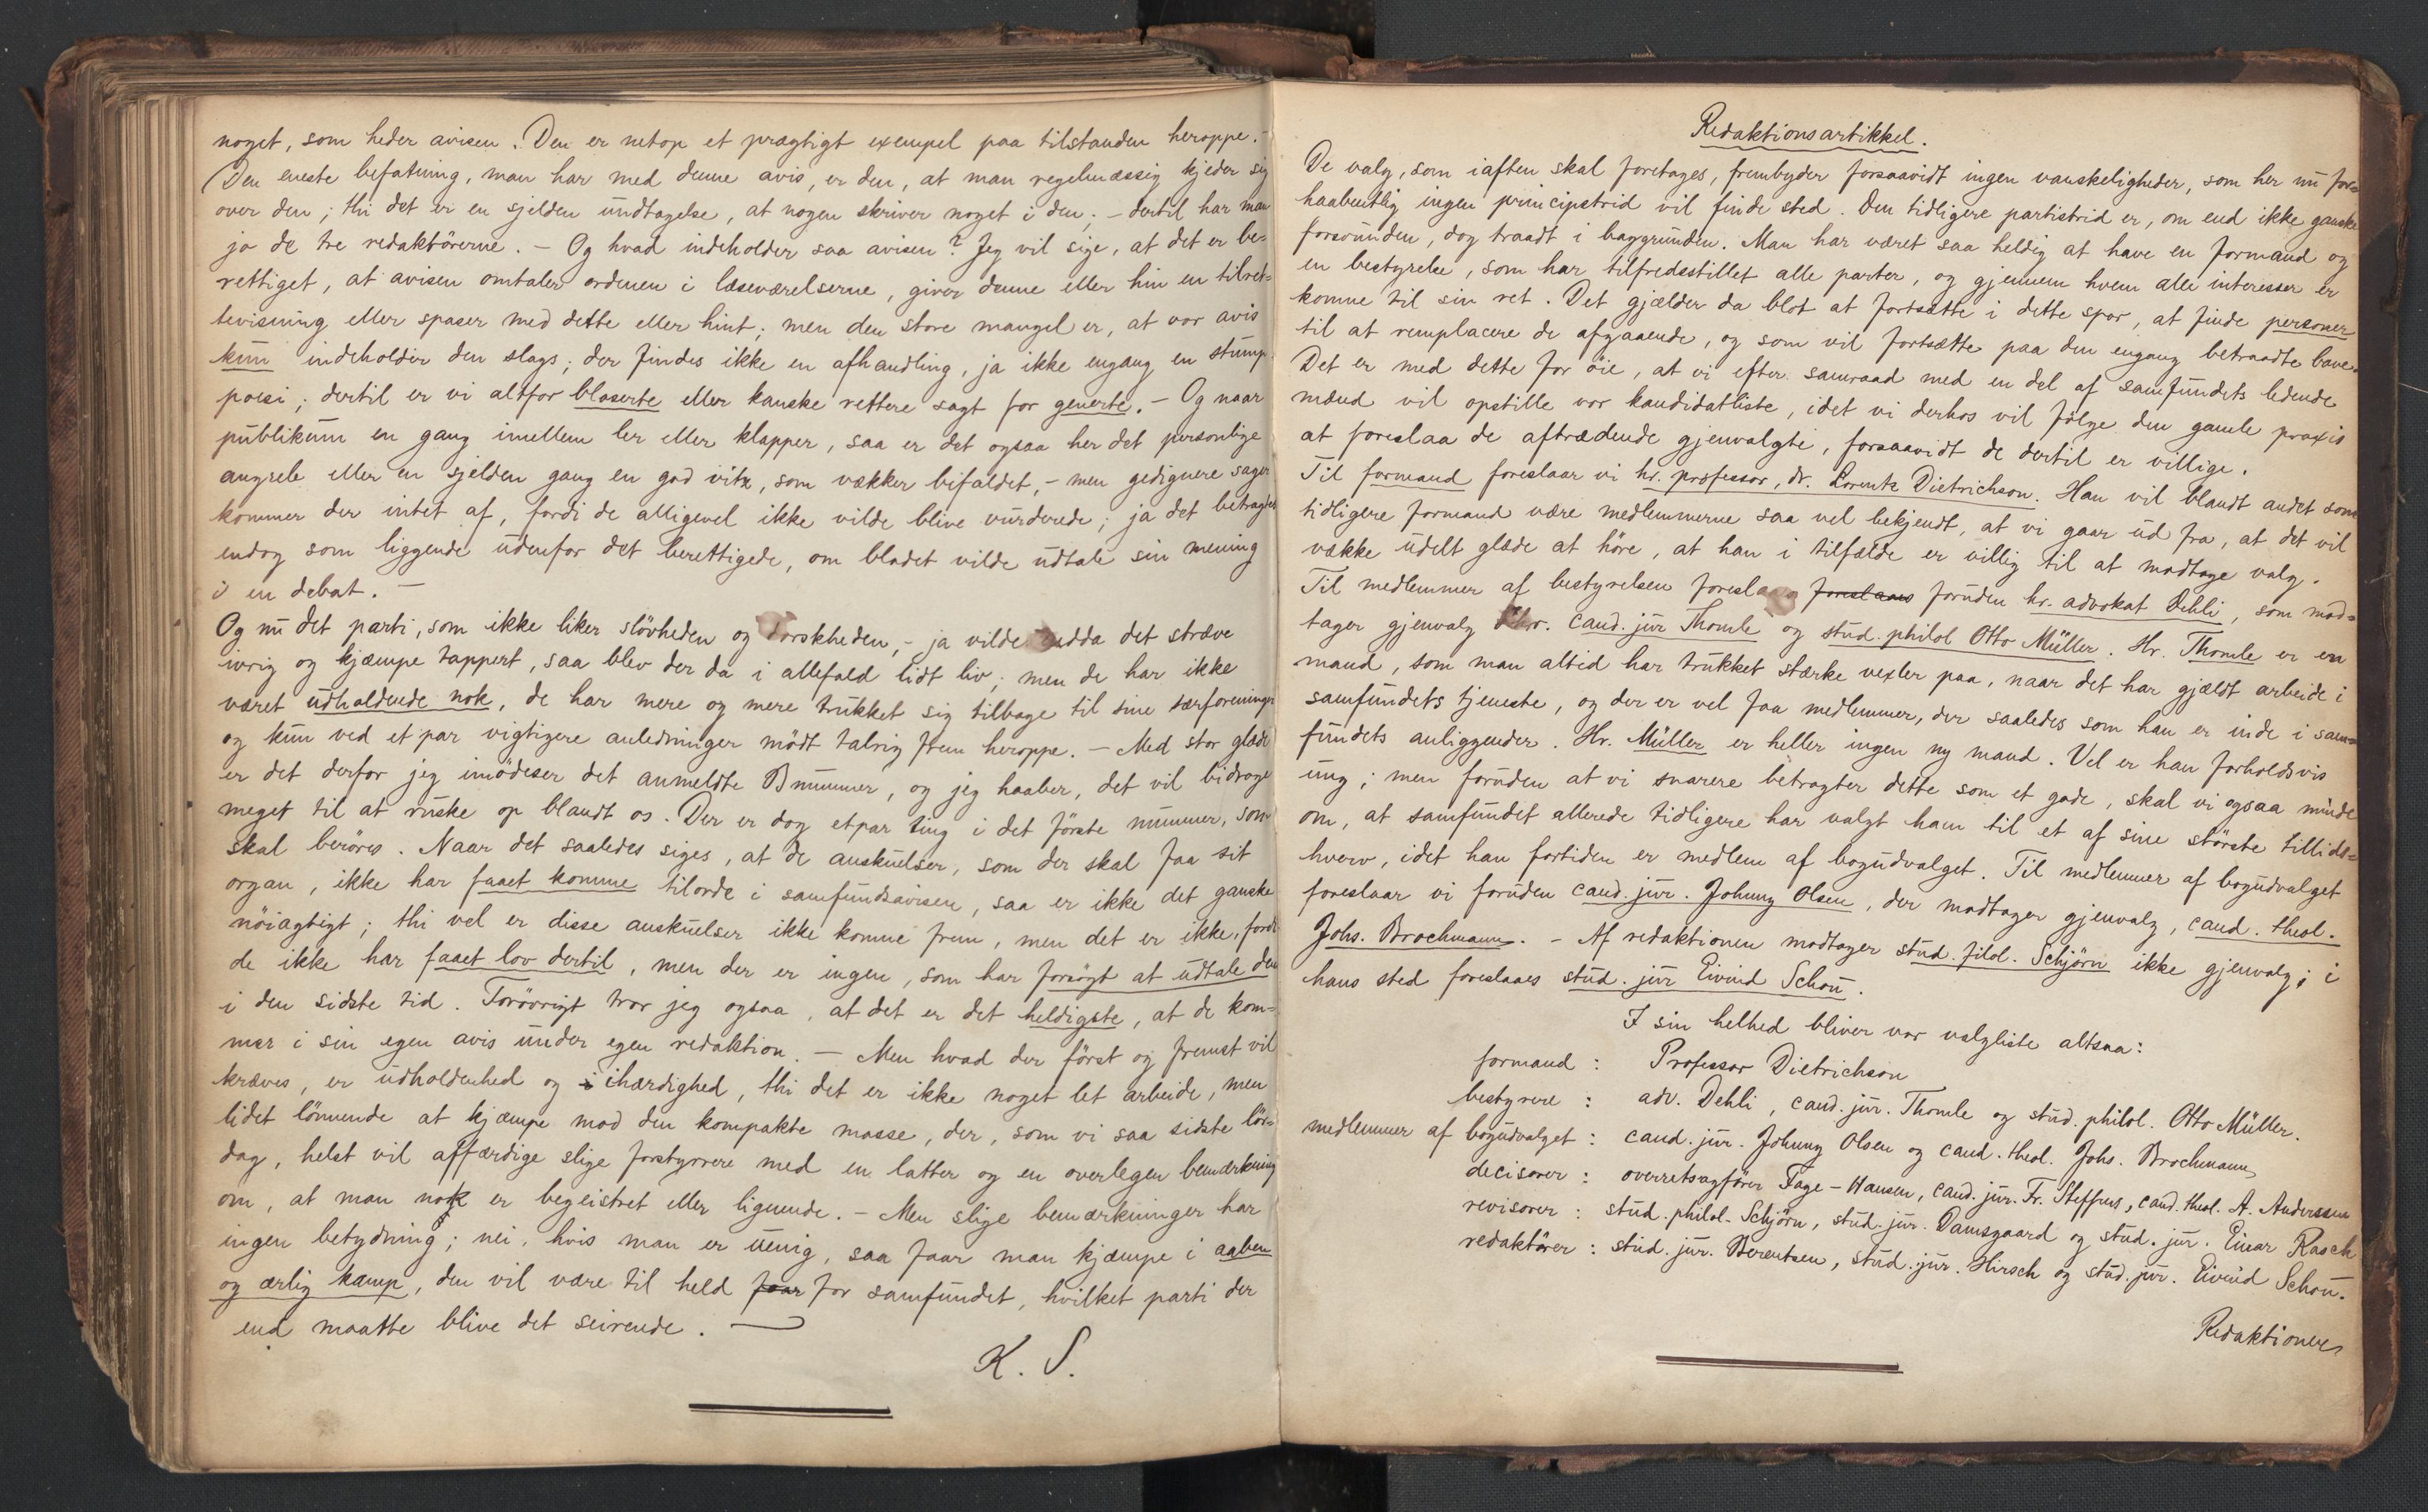 noget, som heder avisen. Den er netop et prægtigt exempel paa tilstanden heroppe. –
Den eneste befatning, man har med denne avis, er den, at man regelmæssig kjeder sig
over den; thi det er en sjelden undtagelse, at nogen skriver noget i den; – dertil har man
jo de tre redaktörerne. – Og hvad indeholder saa avisen? Jeg vil sige, at det er be-
rettiget, at avisen omtaler ordenen i læseværelserne, giver denne eller hin en tilret-
tevisning eller spaser med dette eller hint; men den store mangel er, at vor avis
kun indeholder den slags; der findes ikke en afhandling, ja ikke engang en stump
poesi; dertil er vi altfor blaserte eller kanske rettere sagt for generte. – Og naar
publikum en gang imellem ler eller klapper, saa er det ogsaa her det personlige
angreb eller en sjelden gang en god vits, som vækker bifaldet, – men gedignere sager
kommer der intet af, fordi de alligevel ikke vilde blive vurderede; ja det betragtes
endog som liggende udenfor det berettigede, om bladet vilde udtale sin mening
i en debat. –
Og nu det parti, som ikke liker slövheden og torskheden, – ja vilde endda det stræve
ivrig og kjæmpe tappert, saa blev der da i allefald lidt liv; men de har ikke
været udholdende nok, de har mere og mere trukket sig tilbage til sine særforeninger
og kun ved et par vigtigere anledninger mödt talrig frem heroppe. – Med stor glæde
er det derfor jeg imödeser det anmeldte B nummer, og jeg haaber, det vil bidrage
meget til at ruske op blandt os. Der er dog etpar ting i det förste nummer, som
skal beröres. Naar det saaledes siges, at de anskuelser, som der skal faa sit
organ, ikke har faaet komme tilorde i samfundsavisen, saa er ikke det ganske
nöiagtigt; thi vel er disse anskuelser ikke komne frem, men det er ikke, fordi
de ikke har faaet lov dertil, men der er ingen, som har forsögt at udtale dem
i den sidste tid. Forövrigt tror jeg ogsaa, at det er det heldigste, at de kom-
mer i sin egen avis under egen redaktion. – Men hvad der först og fremst vil
kræves, er udholdenhed og i ihærdighed, thi det er ikke noget let arbeide, men
lidet lönnende at kjæmpe mod den kompakte masse, der, som vi saa sidste lör-
dag, helst vil affærdige slige forstyrrere med en latter og en overlegen bemærkning
om, at man nok er begeistret eller lignende. – Men slige bemærkninger har
ingen betydning; nei, hvis man er uenig, saa faar man kjæmpe i aaben
og ærlig kamp, den vil være til held faar for samfundet, hvilket parti der
end maatte blive det seirende. –
K. S.
Redaktionsartikkel.
De valg, som iaften skal foretages, frembyder forsaavidt ingen vanskeligheder, som her nu for-
haabentlig ingen principstrid vil finde sted. Den tidligere partistrid er, om end ikke ganske
forsvunden, dog traadt i baggrunden. Man har været saa heldig at have en formand og
en bestyrelse, som har tilfredsstillet alle parter, og gjennem hvem alle interesser er
komne til sin ret. Det gjælder da blot at fortsætte i dette spor, at finde personer
til at remplacere de afgaaende, og som vil fortsætte paa den engang betraadte bane.
Det er med dette for öie, at vi efter samraad med en del af samfundets ledende
mænd vil opstille vor kandidatliste, idet vi derhos vil fölge den gamle praxis
at foreslaa de aftrædende gjenvalgte, forsaavidt de dertil er villige.
Til formand foreslaar vi hr. professor, dr. Lorentz Dietrichson. Han vil blandt andet som
tidligere formand være medlemmerne saa vel bekjendt, at vi gaar ud fra, at det vil
vække udelt glæde at höre, at han i tilfælde er villig til at modtage valg.
Til medlemmer af bestyrelsen foreslaaes foreslaaes foruden hr. advokat Dehli, som mod-
tager gjenvalg Hrr. cand. jur Thomle og stud. philol Otto Müller. Hr. Thomle er en
mand, som man altid har trukket stærke vexler paa, naar det har gjældt arbeide i
samfundets tjeneste, og der er vel faa medlemmer, der saaledes som han er inde i sam-
fundets anliggender. Hr. Müller er heller ingen ny mand. Vel er han forholdsvis
ung; men foruden at vi snarere betragter dette som et gode, skal vi ogsaa minde
om, at samfundet allerede tidligere har valgt ham til et af sine störste tillids-
hverv, idet han fortiden er medlem af bogudvalget. Til medlemmer af bogudvalget
foreslaar vi foruden cand. jur. Johnny Olsen, der modtager gjenvalg, cand. theol.
Johs. Brochmann. – Af redaktionen modtager stud. filol. Schjörn ikke gjenvalg; i
hans sted foreslaaes stud. jur Eivind Schou.
I sin helhed bliver vor valgliste altsaa:
formand: Professor Dietrichson
bestyrere: adv. Dehli, cand. jur. Thomle og stud. philol. Otto Müller.
medlemmer af bogudvalget: cand. jur. Johnny Olsen og cand. theol. Johs. Brochmann
decisorer: overretsagförer Fage-Hansen, cand. jur. Fr. Steffens, cand. theol. A. Anderssen
revisorer: stud. philol. Schjörn, stud. jur. Damsgaard og stud. jur. Einar Rasch
redaktörer: stud. jur. Berentsen, stud. jur. Hirsch og stud. jur. Eivind Schou.
Redaktionen